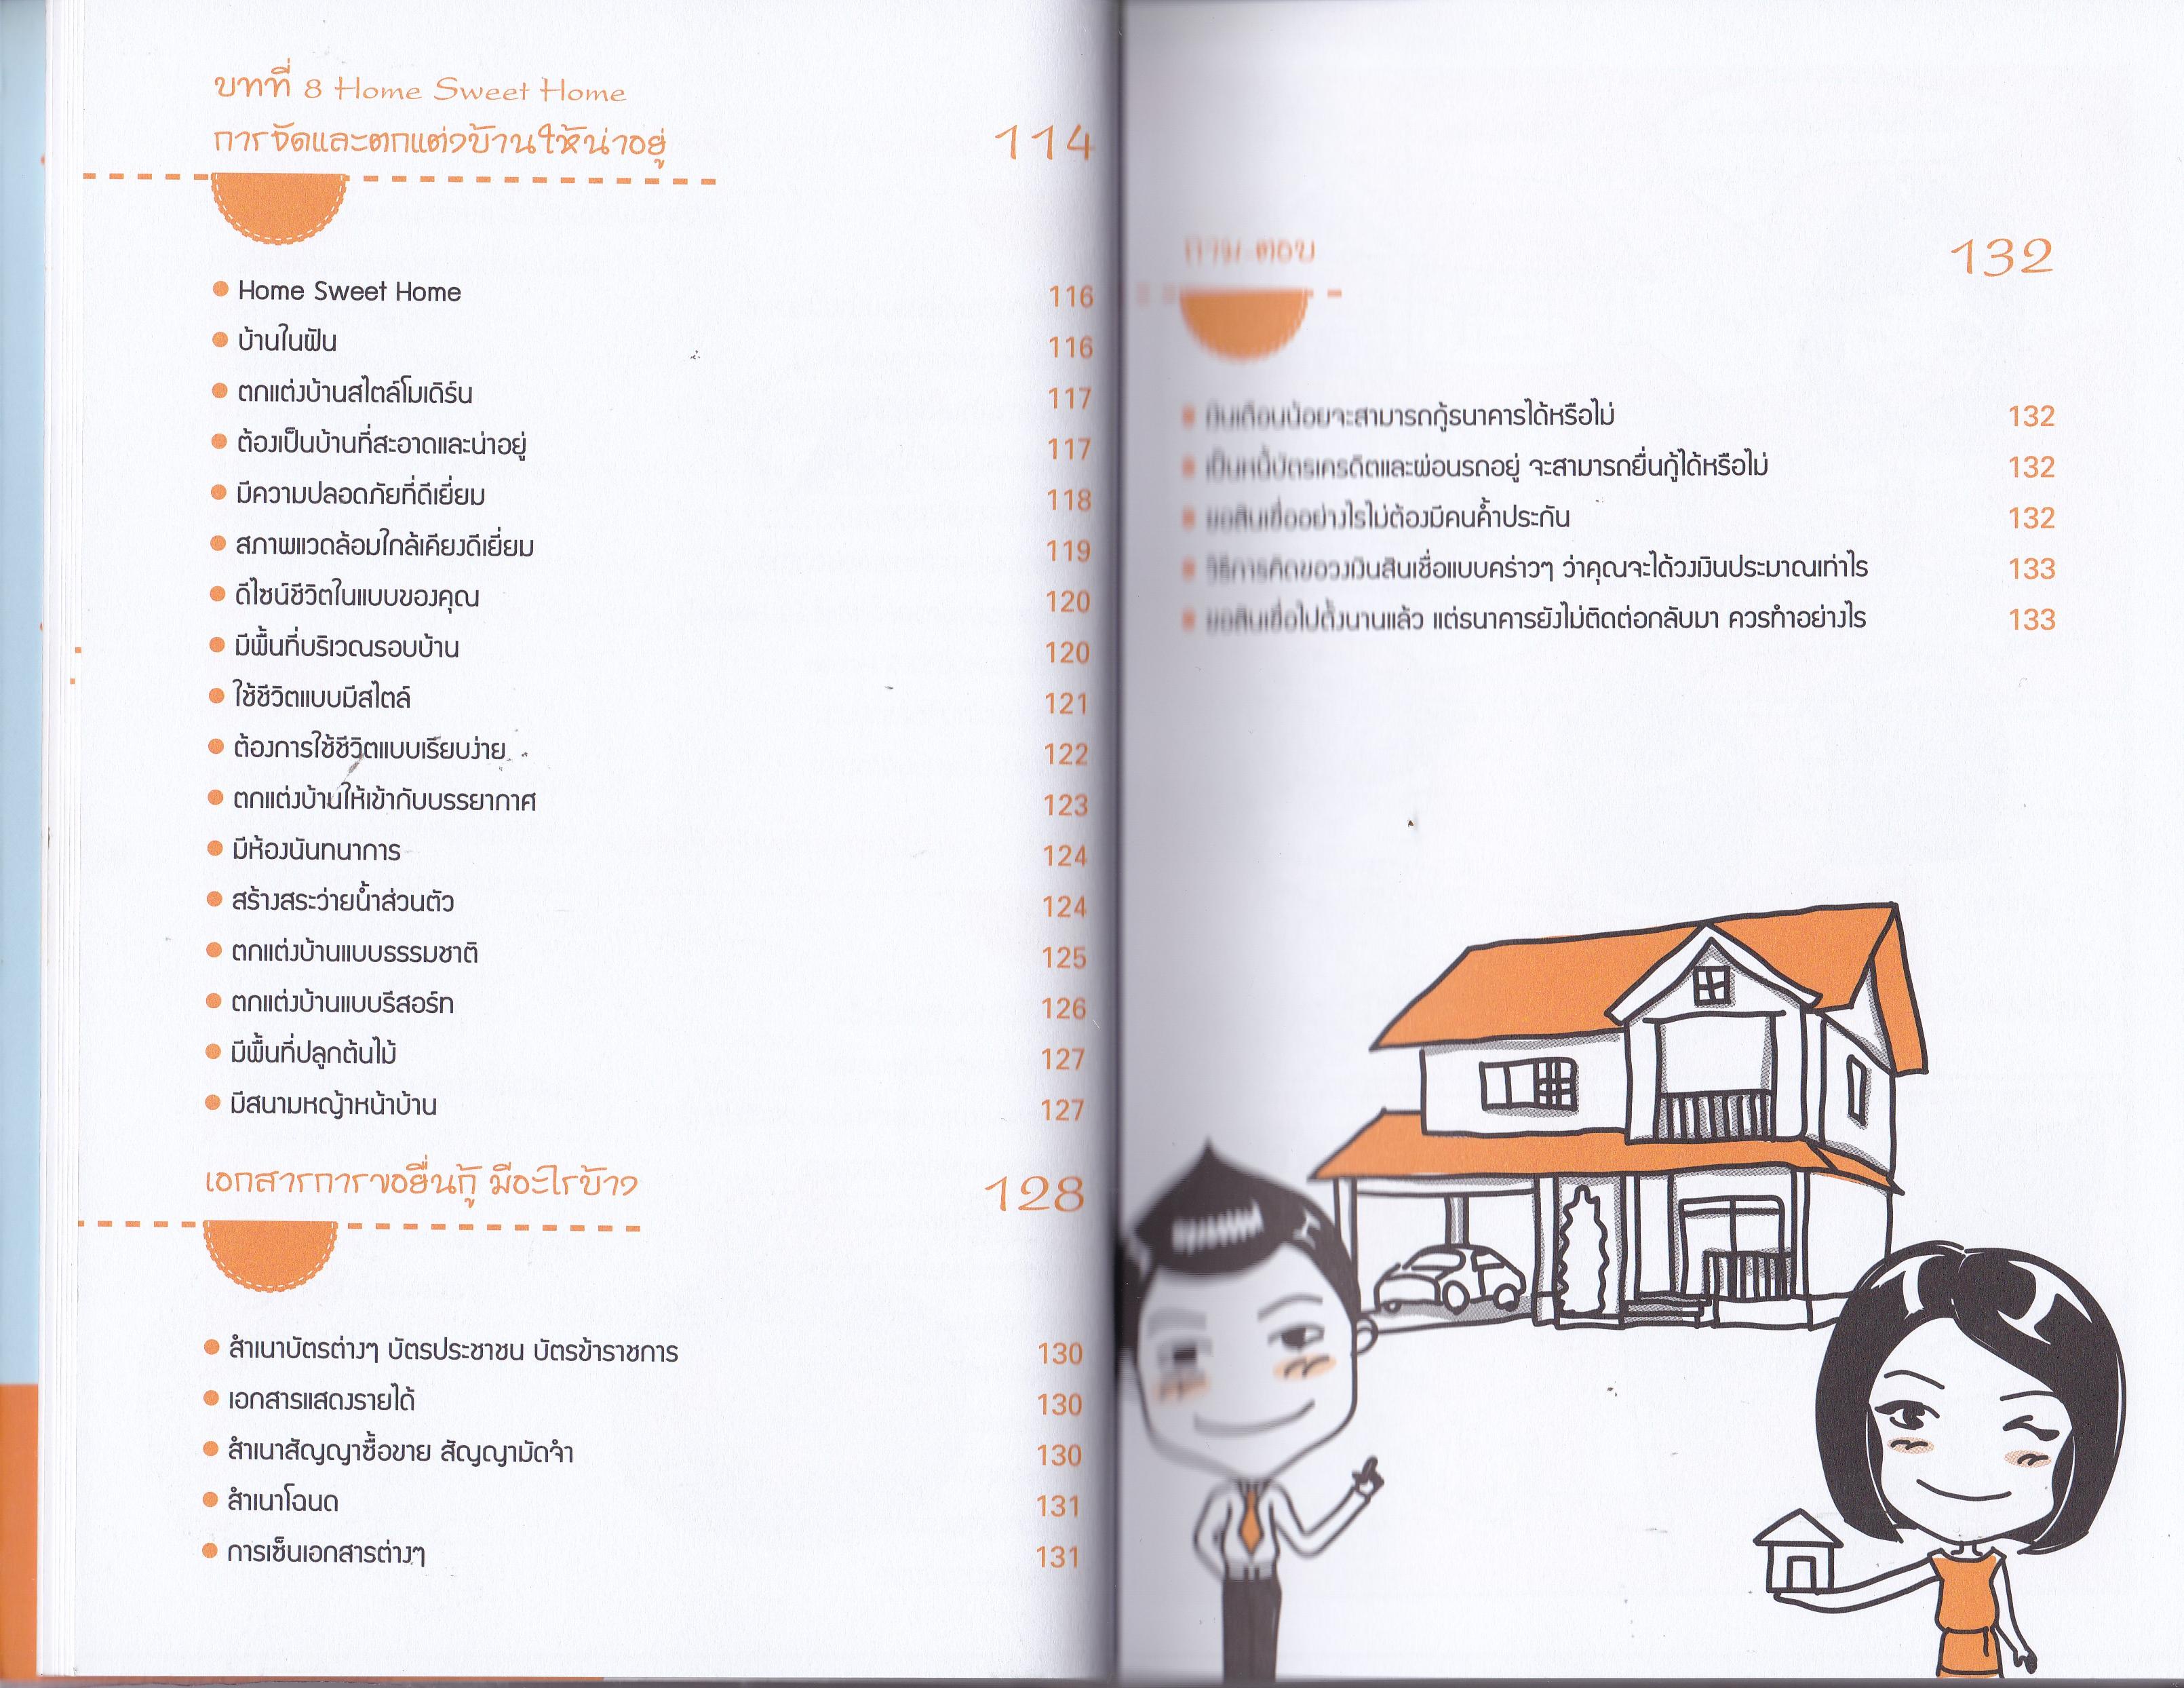 บทที่ 8 Home Sweet Home
การจัดและตกแต่งบ้านให้น่าอยู่ 114
Home Sweet Home 116
บ้านในฝัน 116
ตกแต่งบ้านสไตล์โมเดิร์น 117
ต้องเป็นบ้านที่สะอาดและน่าอยู่ 117
มีความปลอดภัยที่ดีเยี่ยม 118
สภาพแวดล้อมใกล้เคียงดีเยี่ยม 119
ดีไซน์ชีวิตในแบบของคุณ 120
มีพื้นที่บริเวณรอบบ้าน 120
ใช้ชีวิตแบบมีสไตล์ 121
ต้องการใช้ชีวิตแบบเรียบง่าย 122
ตกแต่งบ้านให้เข้ากับบรรยากาศ 123
มีห้องนันทนาการ 124
สร้างสระว่ายน้ำส่วนตัว 124
ตกแต่งบ้านแบบธรรมชาติ 125
ตกแต่งบ้านแบบรีสอร์ท 126
มีพื้นที่ปลูกต้นไม้ 127
มีสนามหญ้าหน้าบ้าน 127
เอกสารการขอยื่นกู้ มีอะไรบ้าง 128
สำเนาบัตรต่างๆ บัตรประชาชน บัตรข้าราชการ 130
เอกสารแสดงรายได้ 130
สำเนาสัญญาซื้อขาย สัญญามัดจำ 130
สำเนาโฉนด 131
การเซ็นเอกสารต่างๆ 131
ถาม-ตอบ 132
เงินเดือนน้อยจะสามารถกู้ธนาคารได้หรือไม่ 132
เป็นหนี้บัตรเครดิตและผ่อนรถอยู่ จะสามารถยื่นกู้ได้หรือไม่ 132
ขอสินเชื่ออย่างไรไม่ต้องมีคนค้ำประกัน 132
วิธีการคิดขอวงเงินสินเชื่อแบบคร่าวๆ ว่าคุณจะได้วงเงินประมาณเท่าไร 133
ขอสินเชื่อไปตั้งนานแล้ว แต่ธนาคารยังไม่ติดต่อกลับมา ควรทำอย่างไร 133